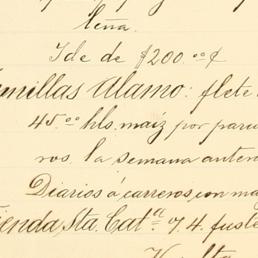 leña.
Id e de $200.00 ¢
millas Alamo: flete
45.00 hls. maíz por
ros. la semana
Diarios á carreros, con
ienda Sta. Catª 74. fuste